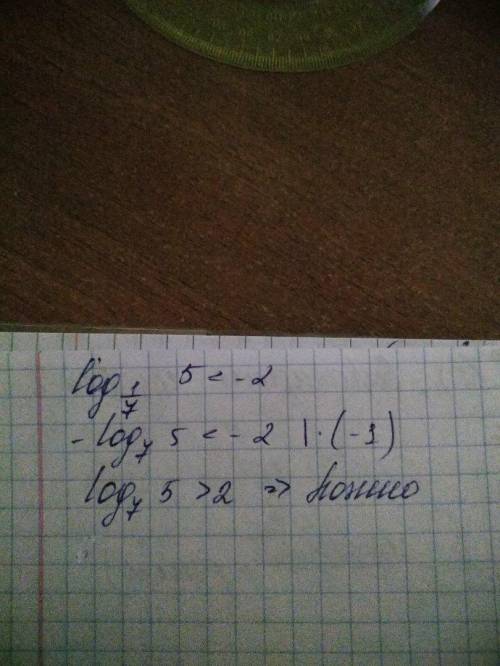 log 1/7 5 < -2
- log 7 5 < -2 | · (-1)
log 7 5 > 2 => ложно